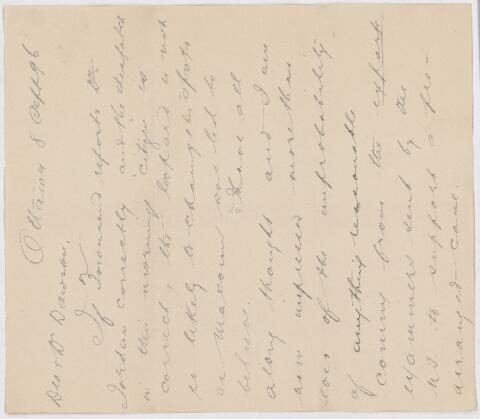 Ottawa 8 Sept 96
Dear Dr Dawson,
If Townsend reports Dr
Jordan correctly and the despatch
in this morning's Citizen is
correct, the leopard is not
so likely to change his spots
as Macoun was led to
believe. I have all
along thought and I am
now impressed more than
ever of the improbability
of anything reasonable
coming from the expert
examiners sent by the
U.S. to support a pre-
arranged case.